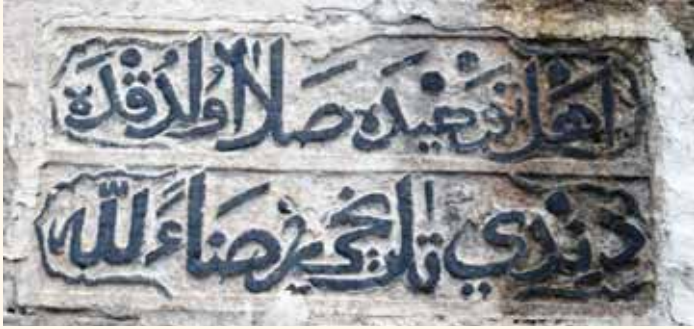 اهل توحیده صلا اولدقده
دیندی تاریخی رضاءً لله